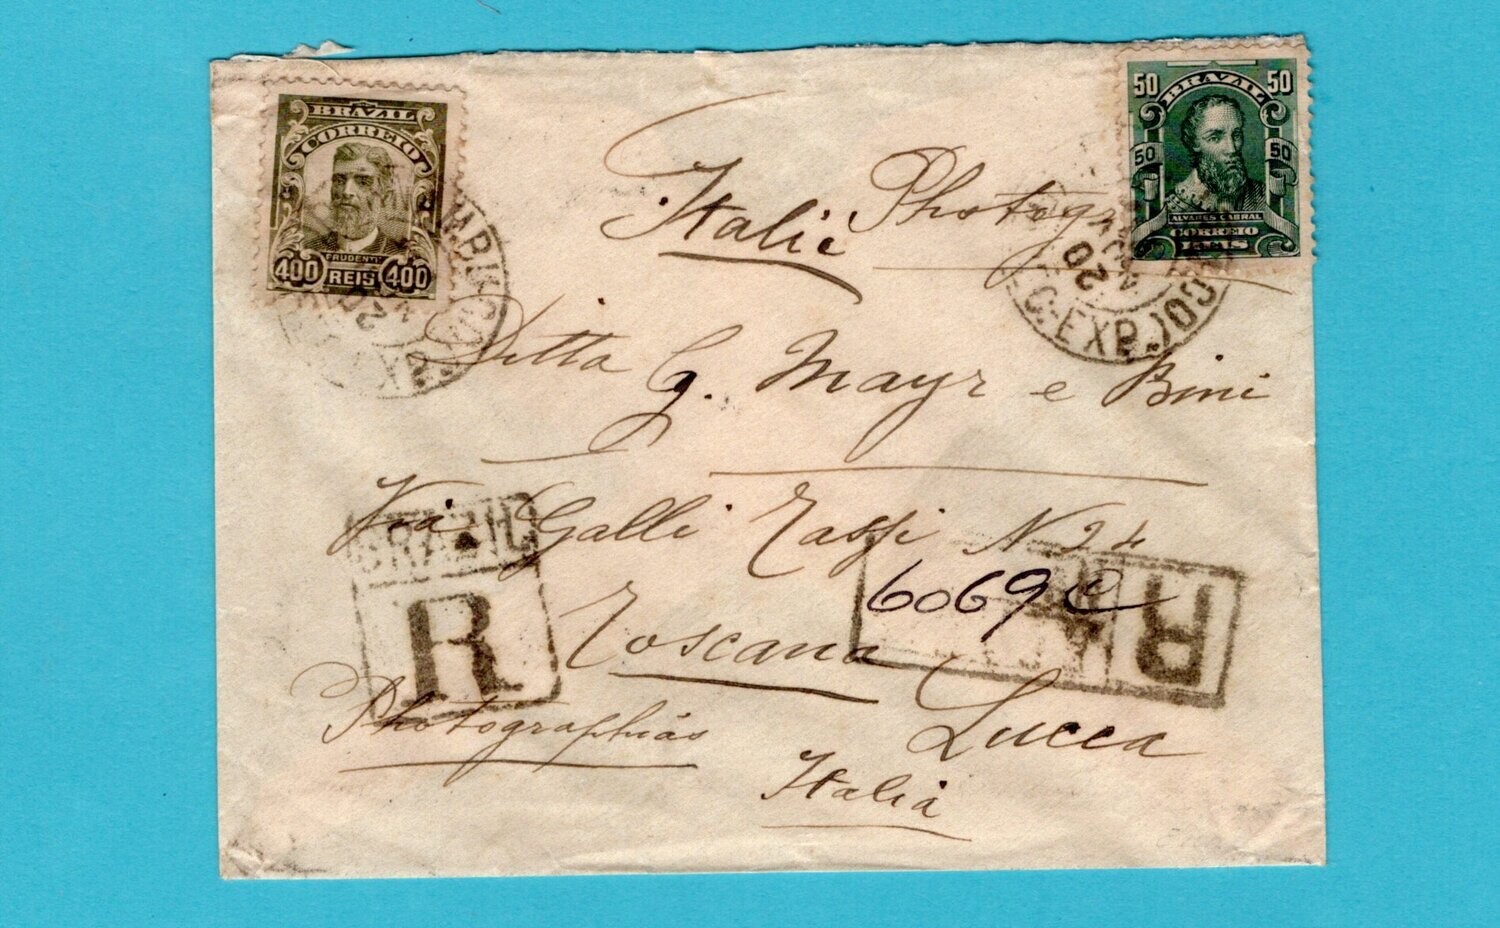 BRAZIL
CORREIO
PRUDENTE
400 REIS 400
50 BRAZIL 50
50 50
ALVARES CABRAL
CORREIO
REIS
Italié Photog
Ditta G. Mayr e Bini
Via Galli Tassi N 24
6069 C
Toscana
Lucca
Italia
Photographias
BRAZIL
R
R
20
C. EXP.